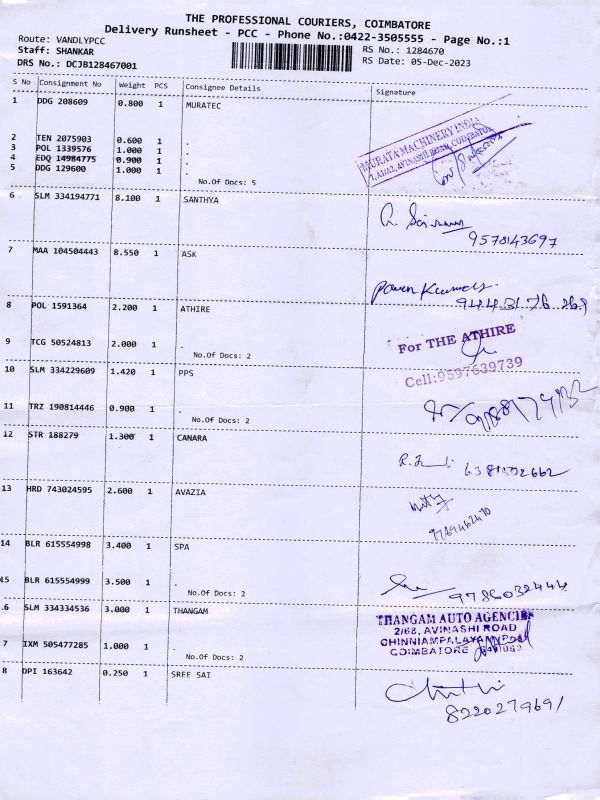 THE PROFESSIONAL COURIERS, COIMBATORE
Delivery Runsheet - PCC - Phone No.:0422-3505555 - Page No.:1
Route: VANDLYPCC
Staff: SHANKAR RS No.: 1284670
DRS No.: DCJB128467001 RS Date: 05-Dec-2023
S No Consignment No Weight PCS Consignee Details Signature
1 DDG 208609 0.800 1 MURATEC
MURATA MACHINERY INDIA
7, A1/A2, AVINASHI ROAD, COIMBATORE
2 TEN 2075903 0.600 1 .
3 POL 1339576 1.000 1 .
4 EDQ 14984775 0.900 1 .
5 DDG 129600 1.000 1 .
No.Of Docs: 5
6 SLM 334194771 8.100 1 SANTHYA
9578143697
7 MAA 104504443 8.550 1 ASK
Pawen Kumar
944 31 76 269
8 POL 1591364 2.200 1 ATHIRE
For THE ATHIRE
9 TCG 50524813 2.000 1 .
No.Of Docs: 2
Cell:9597639739
10 SLM 334229609 1.420 1 PPS
11 TRZ 190814446 0.900 1 .
No.Of Docs: 2
12 STR 188279 1.300 1 CANARA
6381502662
13 HRD 743024595 2.600 1 AVAZIA
9789462470
14 BLR 615554998 3.400 1 SPA
15 BLR 615554999 3.500 1 .
No.Of Docs: 2
9786032444
.6 SLM 334334536 3.000 1 THANGAM
THANGAM AUTO AGENCIES
2/68, AVINASHI ROAD
CHINNIAMPALAYAM Post
COIMBATORE 641062
7 IXM 505477285 1.000 1 .
No.Of Docs: 2
8 DPI 163642 0.250 1 SREE SAI
8220279691